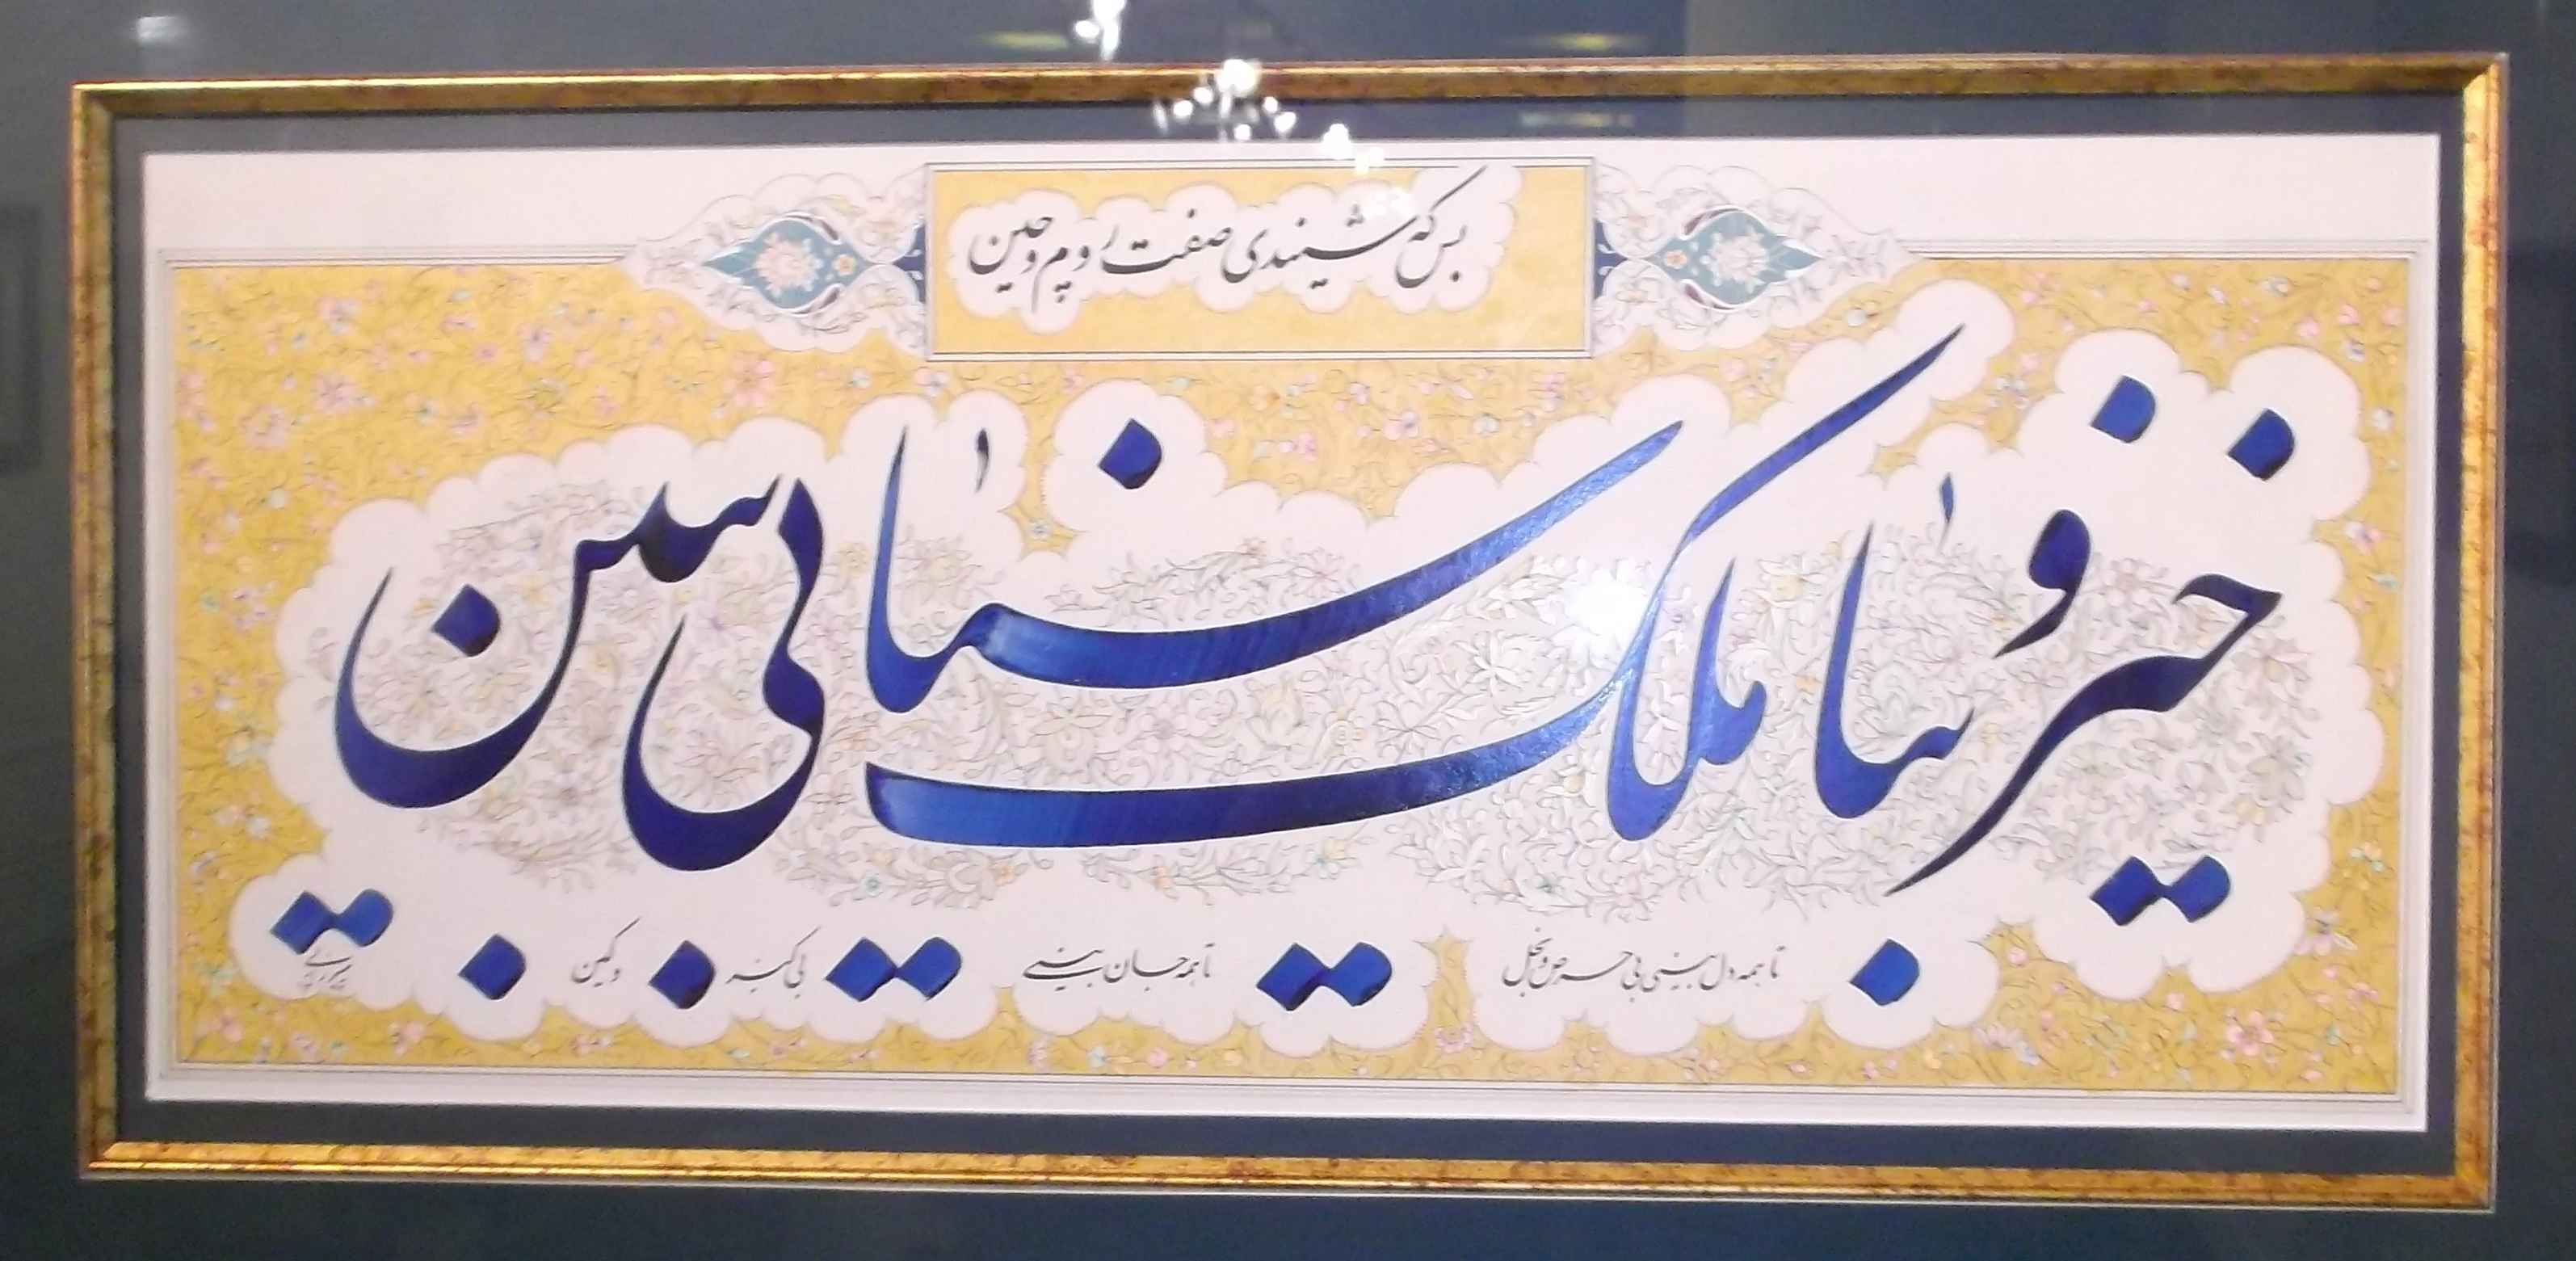 بس که شنیدی صفت روم و چین
خیز و بیا ملک سنایی ببین
تا همه دل بینی بی حرص و بخل تا همه جان بینی بی کبر و کین